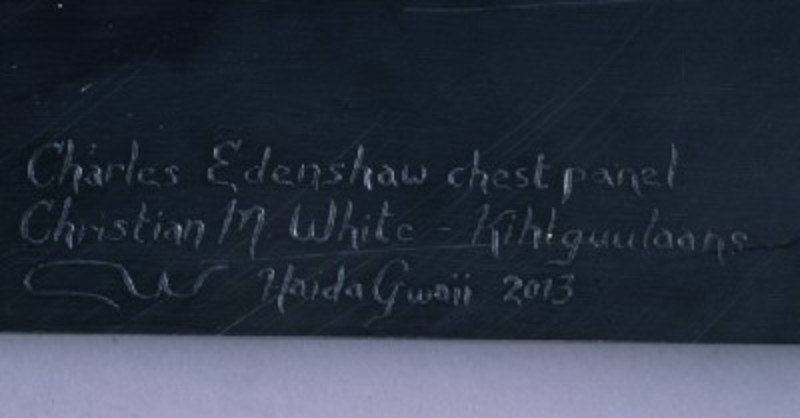 Charles Edenshaw chest panel
Christian M. White - Kihlguulaans
CW Haida Gwaii 2013